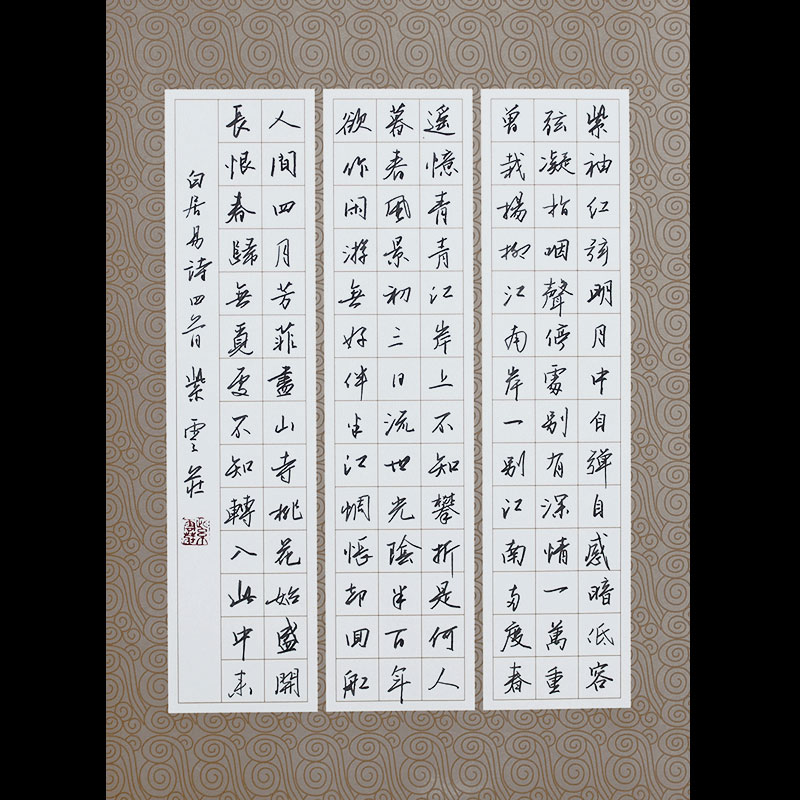 紫袖红弦明月中自弹自感暗低容
弦凝指咽聲停處别有深情一萬重
曾栽楊柳江南岸一别江南两度春
遥憶青青江岸上不知攀折是何人
暮春風景初三日流世光陰半百年
欲作闲游無好伴半江惆悵却回船
人間四月芳菲盡山寺桃花始盛開
長恨春歸無覓處不知轉入此中来
白居易詩四首 紫雲莊